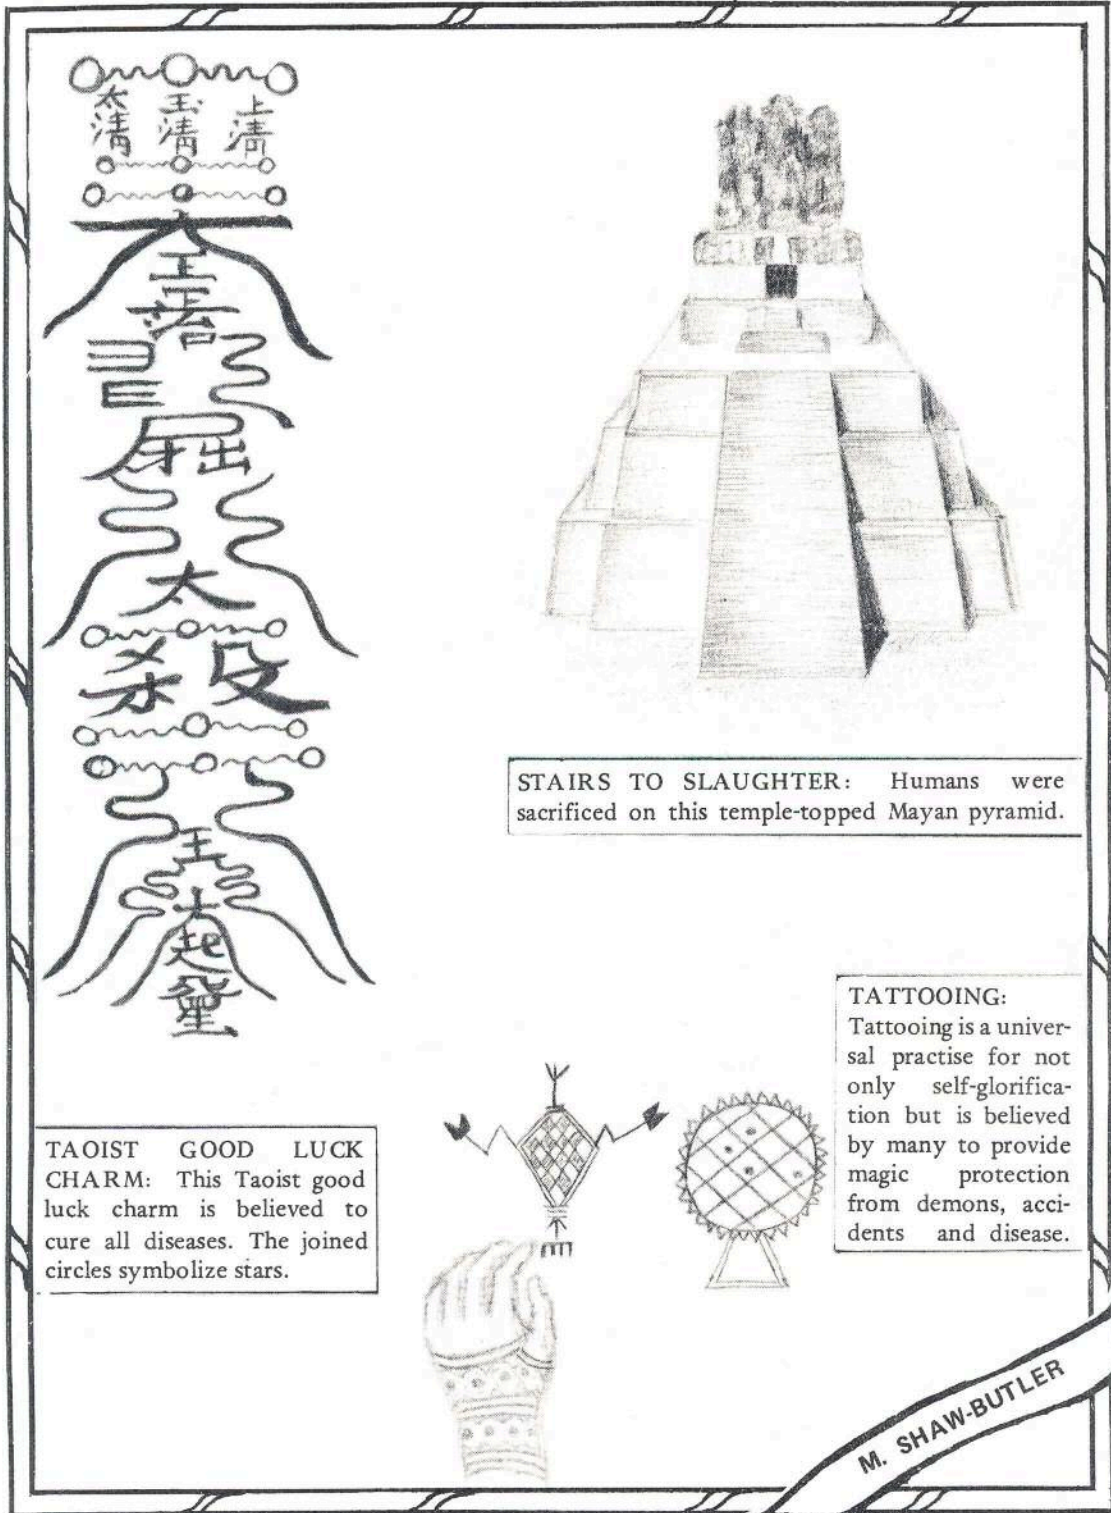 上清
玉清
太清
太
殺
王
大
起
STAIRS TO SLAUGHTER: Humans were
sacrificed on this temple-topped Mayan pyramid.
TATTOOING:
Tattooing is a univer-
sal practise for not
only self-glorifica-
tion but is believed
by many to provide
magic protection
from demons, acci-
dents and disease.
TAOIST GOOD LUCK
CHARM: This Taoist good
luck charm is believed to
cure all diseases. The joined
circles symbolize stars.
M. SHAW-BUTLER